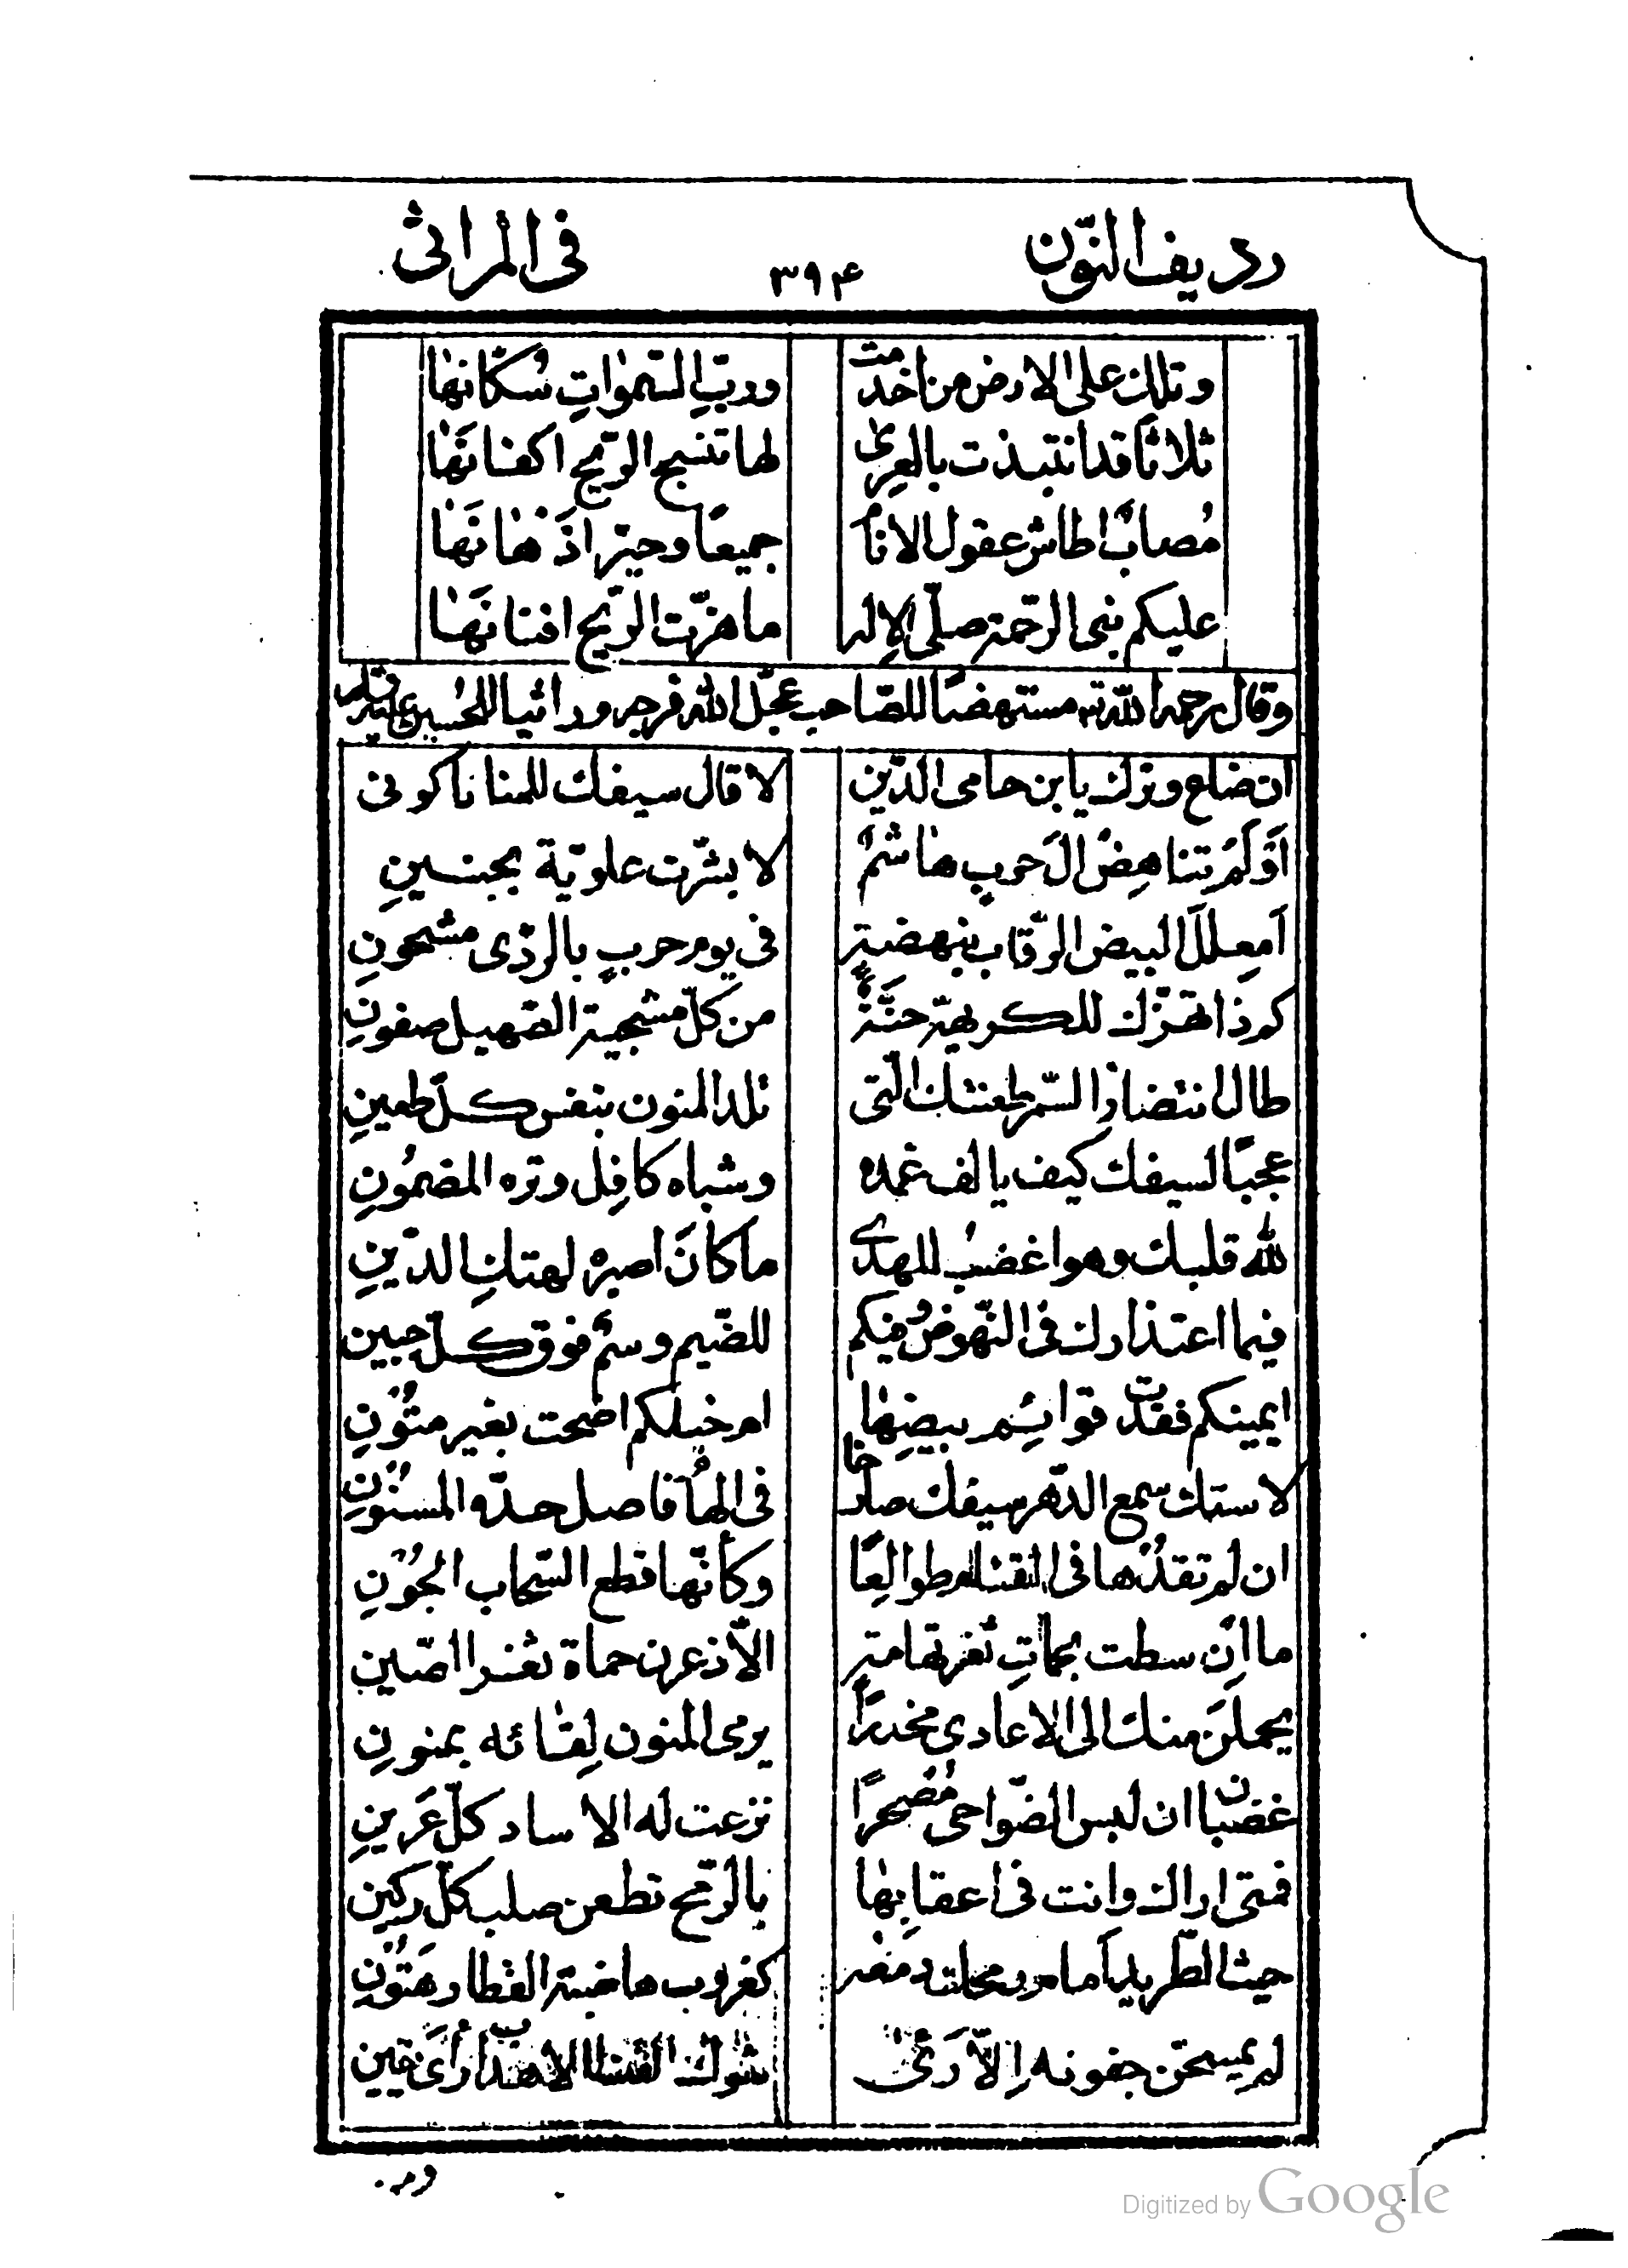 رديف النّون ٣٩۴ فى المراثى
وتلك على الارض من اخدمت وربِّ السّمٰواتِ سُكّانهٰا
ثلاثاً قد انتبذت بالعرىٰ لها تنسج الرّيح اكفانَهٰا
مُصابٌ اطاش عقول الانام جميعًا وحيّر اذَهٰانَهٰا
عليكم بنى الرّحمة صلّى الإله ما هزّت الرّيح افنانَهٰا
وقال رحمه الله مستنهضًا للصّاحب عجّل الله فرجه وراثيا للحسين عليه
ان ضاع وترك يا بن حامى الدّين لا قال سيفك للمنايا كونى
اَوَلَمْ تناهِضُ الَ حربٍ هٰاشمٌ لا بشّرت علويّة بجنينِ
اَمعلّلَ البيض الرّقاب بنهضةٍ فى يوم حربٍ بالرّدى مشحونِ
كم ذا تهزّك للكريهة حنَّةٌ من كلّ مشجية الصّهيل صفونِ
طال انتضار السّمر طعنتك الّتى تلد المنون بنفس كلّ طعينِ
عجبًا لسيفك كيف يالف غمده وشباه كافِل وتره المضمُونِ
لله قلبك وهو اغضبُ للهدىٰ ما كانَ اصبره لهتكِ الدّينِ
فيما اعتذارك فى النّهوض وفيكم للضّيم وسمٌ فوق كلّ جبين
ايمينكم فقدت قوائِم بيضِهٰا ام خيلكم اضحت بغير متُونِ
لا ستك سمع الدّهر سيفك صارخا فى الهٰام فاصل حدّه المسنُونِ
ان لم تقدْها فى القتام طوالعًا وكأنّها قطع السّحاب الجُوْنِ
ما اِن سطت بحماتِ ثغر تهامةٍ الاّ ذعرن حماة ثغر الصّين
يحملنَ منك الى الاعادى مخدرًا يرمى المنون لِقٰائه بمنونِ
غضبان ان لبس الضّواحى مُصْحرًا نزعت له الاساد كلّ عَرينِ
فمتى اراك وانت فى اعقابِهٰا بالرّمح تطعن صلب كلّ ركين
حيث الطّريد اَمام رمحك دمعه كغروب هاضبة القطار هَتُونِ
لم يمسحن جفونه اِلاّ رَاىٰ شوك القنا الاهداب رأىَ يقين